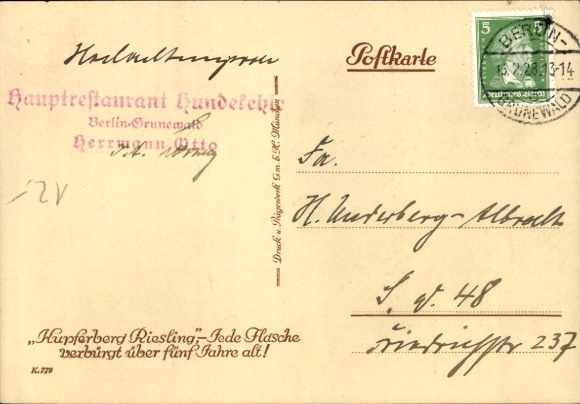 Hochachtungsvoll
Hauptrestaurant Hundekehle
Berlin-Grunewald
Herrmann Otto
„Kupferberg Riesling“, – Jede Flasche
verbürgt über fünf Jahre alt!
K.779
Druck u. Prägewerk G.m.b.H. München
Postkarte
5
Deutsches Reich
BERLIN-
13-14
GRUNEWALD
Fa.
H. Underberg-Albrecht
S.W. 48
Friedrichstr 237